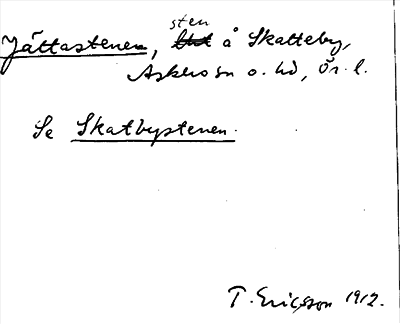 Jättastenen, sten å Skatteby,
Askers sn o. hd, Ör. l.
Se Skatbystenen.
T. Ericsson 1912.